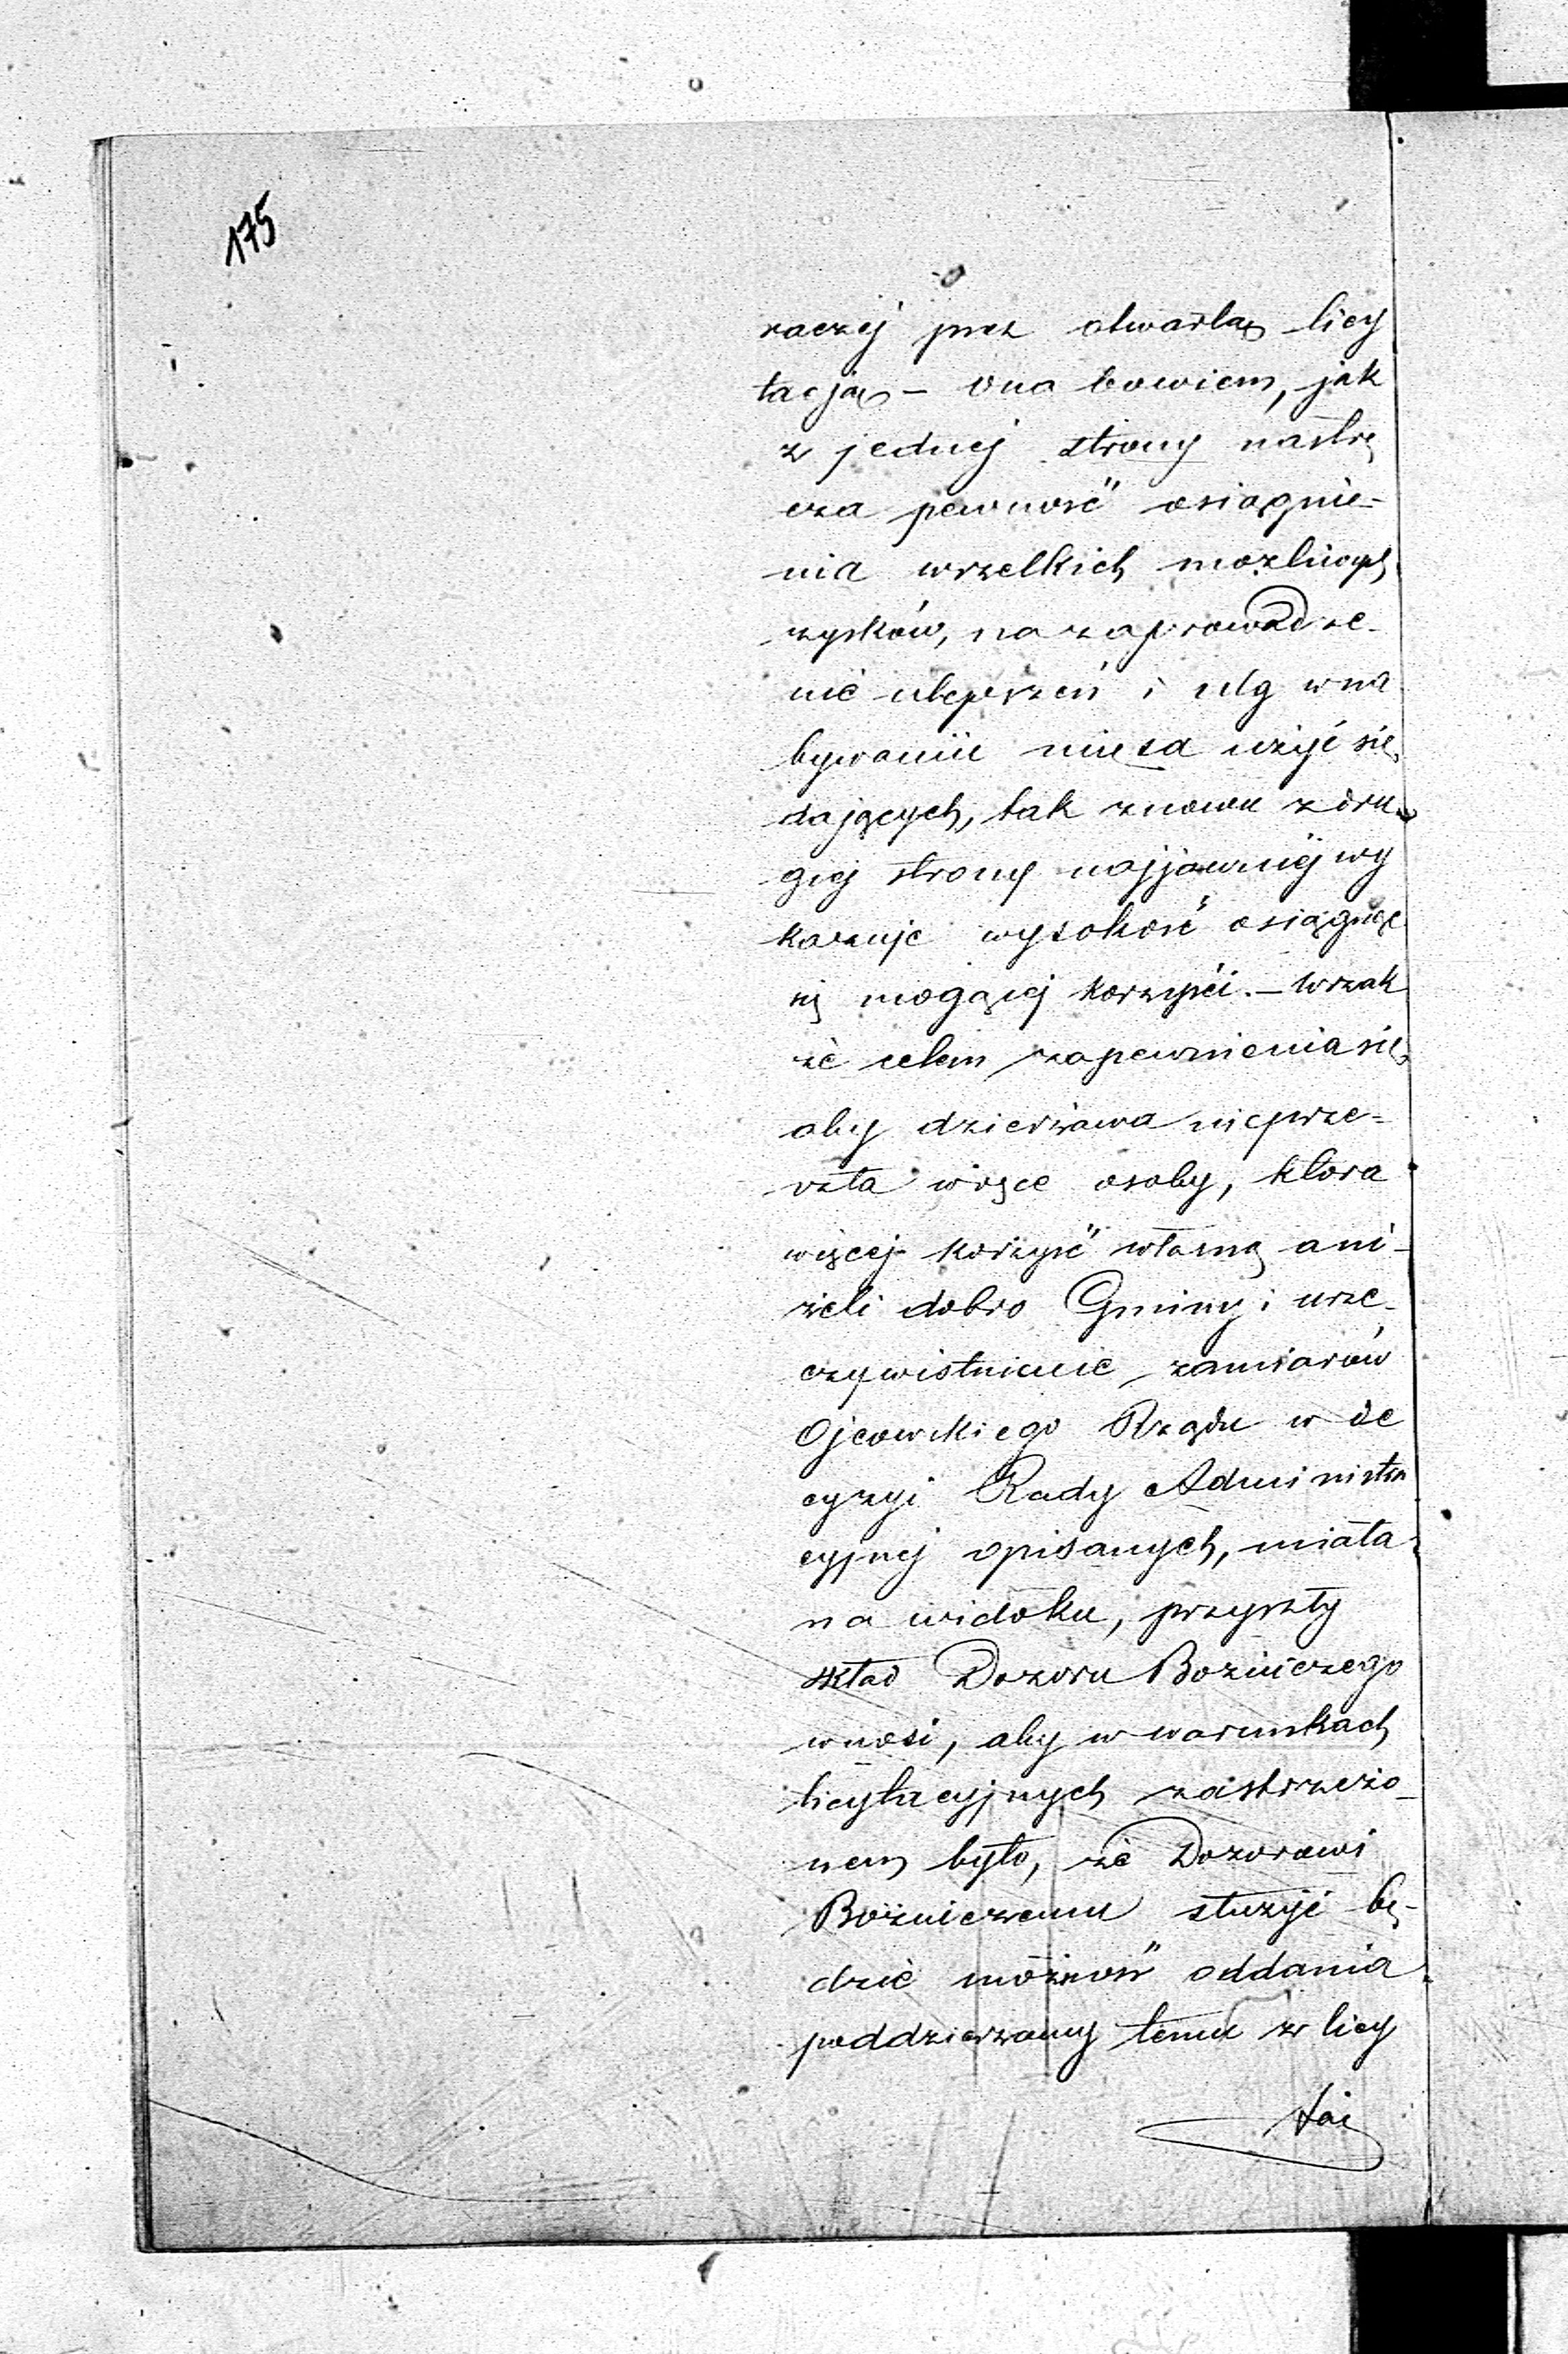 175
raczej przez otwartą licy
tacją – ona bowiem, jak
z jednej strony nastrę
cza pewność osiągnie-
nia wszelkich możliwych
zysków, na zaprowadze-
nie ulepszeń i ulg w na
bywaniu mięsa użyć się
dających, tak znowu z dru-
giej strony najjawniej wy
kazuje wysokość osiągnąć
się mogącej korzyści. – Wszak
że celem zapewnienia się
aby dzierżawa nieprze-
szła w ręce osoby, która
więcej korzyść własną ani-
żeli dobro Gminy i urze-
czywistnienie zamiarów
Ojcowskiego Rządu w de
cyzyi Rady Administra
cyjnej opisanych, miała
na widoku, przyszły
skład Dozoru Bożniczego
wnosi, aby w warunkach
licytacyjnych zastrzeżo-
nem było, że Dozorowi
Bożniczemu służyć bę-
dzie możność oddania
poddzierżawy temu z licy
tai